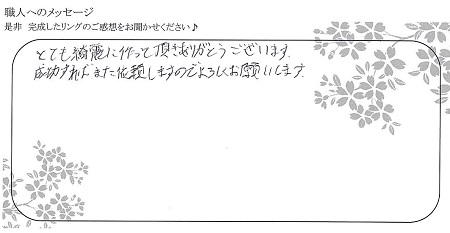 職人へのメッセージ
是非 完成したリングのご感想をお聞かせください♪
とても綺麗に作って頂きありがとうございます。
成功すればまた依頼しますのでよろしくお願いします。